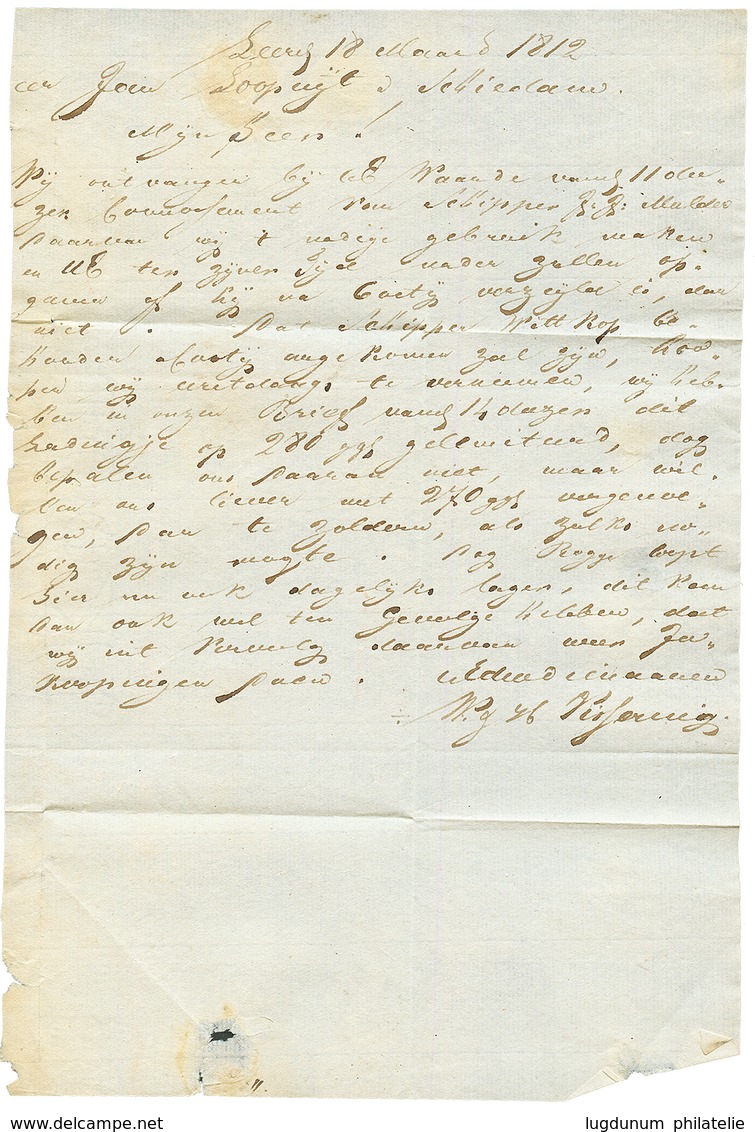 Leer 18 Maart 1812
Jan Loopuijt Schiedam.
Mijn Heer!
Wij ontvangen bij UE Waarde van 11 de-
zer Connossement van Schipper Mulder
Daarvan wij 't nodige gebruik maken
en UE ter zijner Tijd nader zullen op-
geven of hij na Costij verzeyld is, dan
niet. Dat Schipper Wittkop be-
houden Costij angekomen zal zijn, hoo-
pen wij eerstdaags te vernemen, wij heb-
ben in onzen Brief van 14 dezer dit
Ladingje op 280 gelimiteerd, dog
bepalen ons Daaran niet, maar wil-
len ons liever met 270 vergenoe-
gen, Dan te zolderen, als zulks no-
dig zijn mogte. Dog Rogge loopt
hier nu ook dagelijks lager, dit kan
Dan ook wel ten Gevolge hebben, dat
wij int Vervolg daarvan weer In-
koopingen Doen.